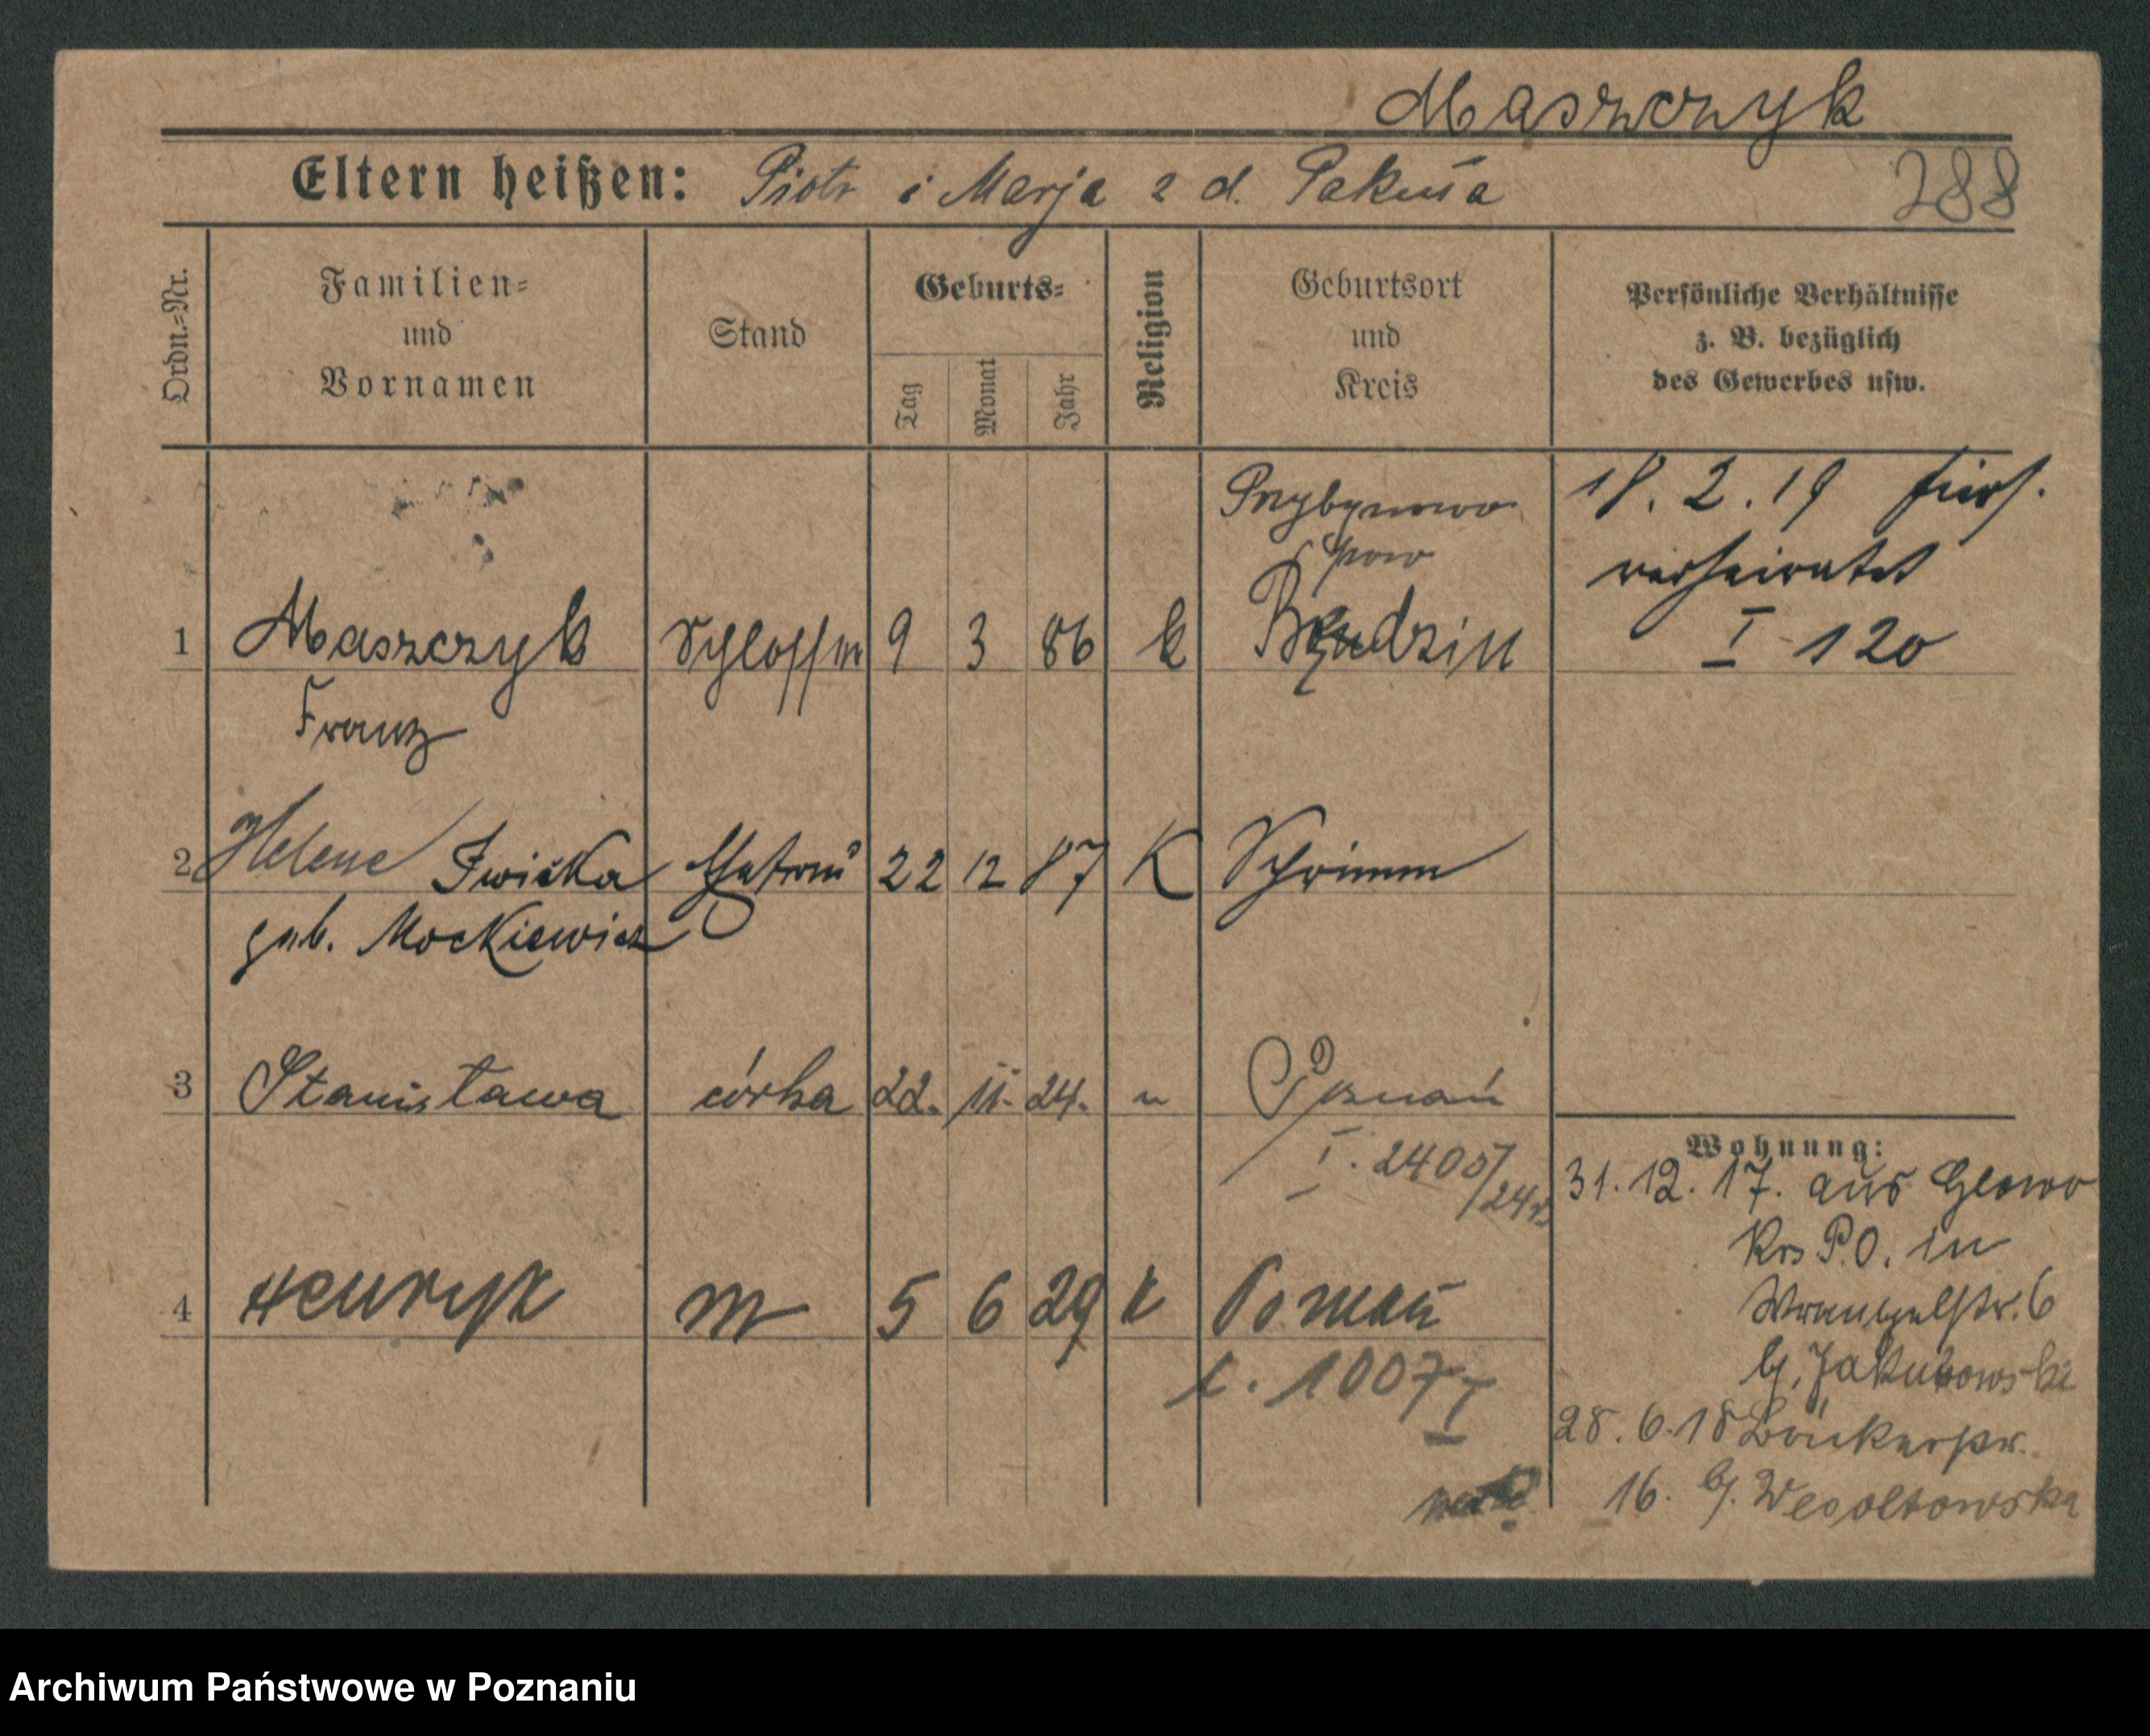 Maszczyk
Eltern heißen: Piotr i Marja z d. Pakuła
288
Ordn.-Nr.
Familien-
und
Vornamen
Stand
Geburts-
Tag
Monat
Jahr
Religion
Geburtsort
und
Kreis
Persönliche Verhältnisse
z. B. bezüglich
des Gewerbes usw.
Przybynowo
pow
18. 2. 19 hier.
verheiratet
1 Maszczyk Schlosser 9 3 86 k Będzin I 120
Franz
2 Helene Iwicka Ehefrau 22 12 87 K Schrimm
geb. Mockiewicz
3 Stanisława córka 22. 11. 24. " Poznań
I. 2405/24
4 Henryk m 5 6 29 k Poznań
1007 I
Wohnung:
31. 12. 17. aus Glowno
Krs P.O. in
Wrangelstr. 6
b/. Jakubowski
28. 6. 18
16. b/. Wesoltowska
Archiwum Państwowe w Poznaniu